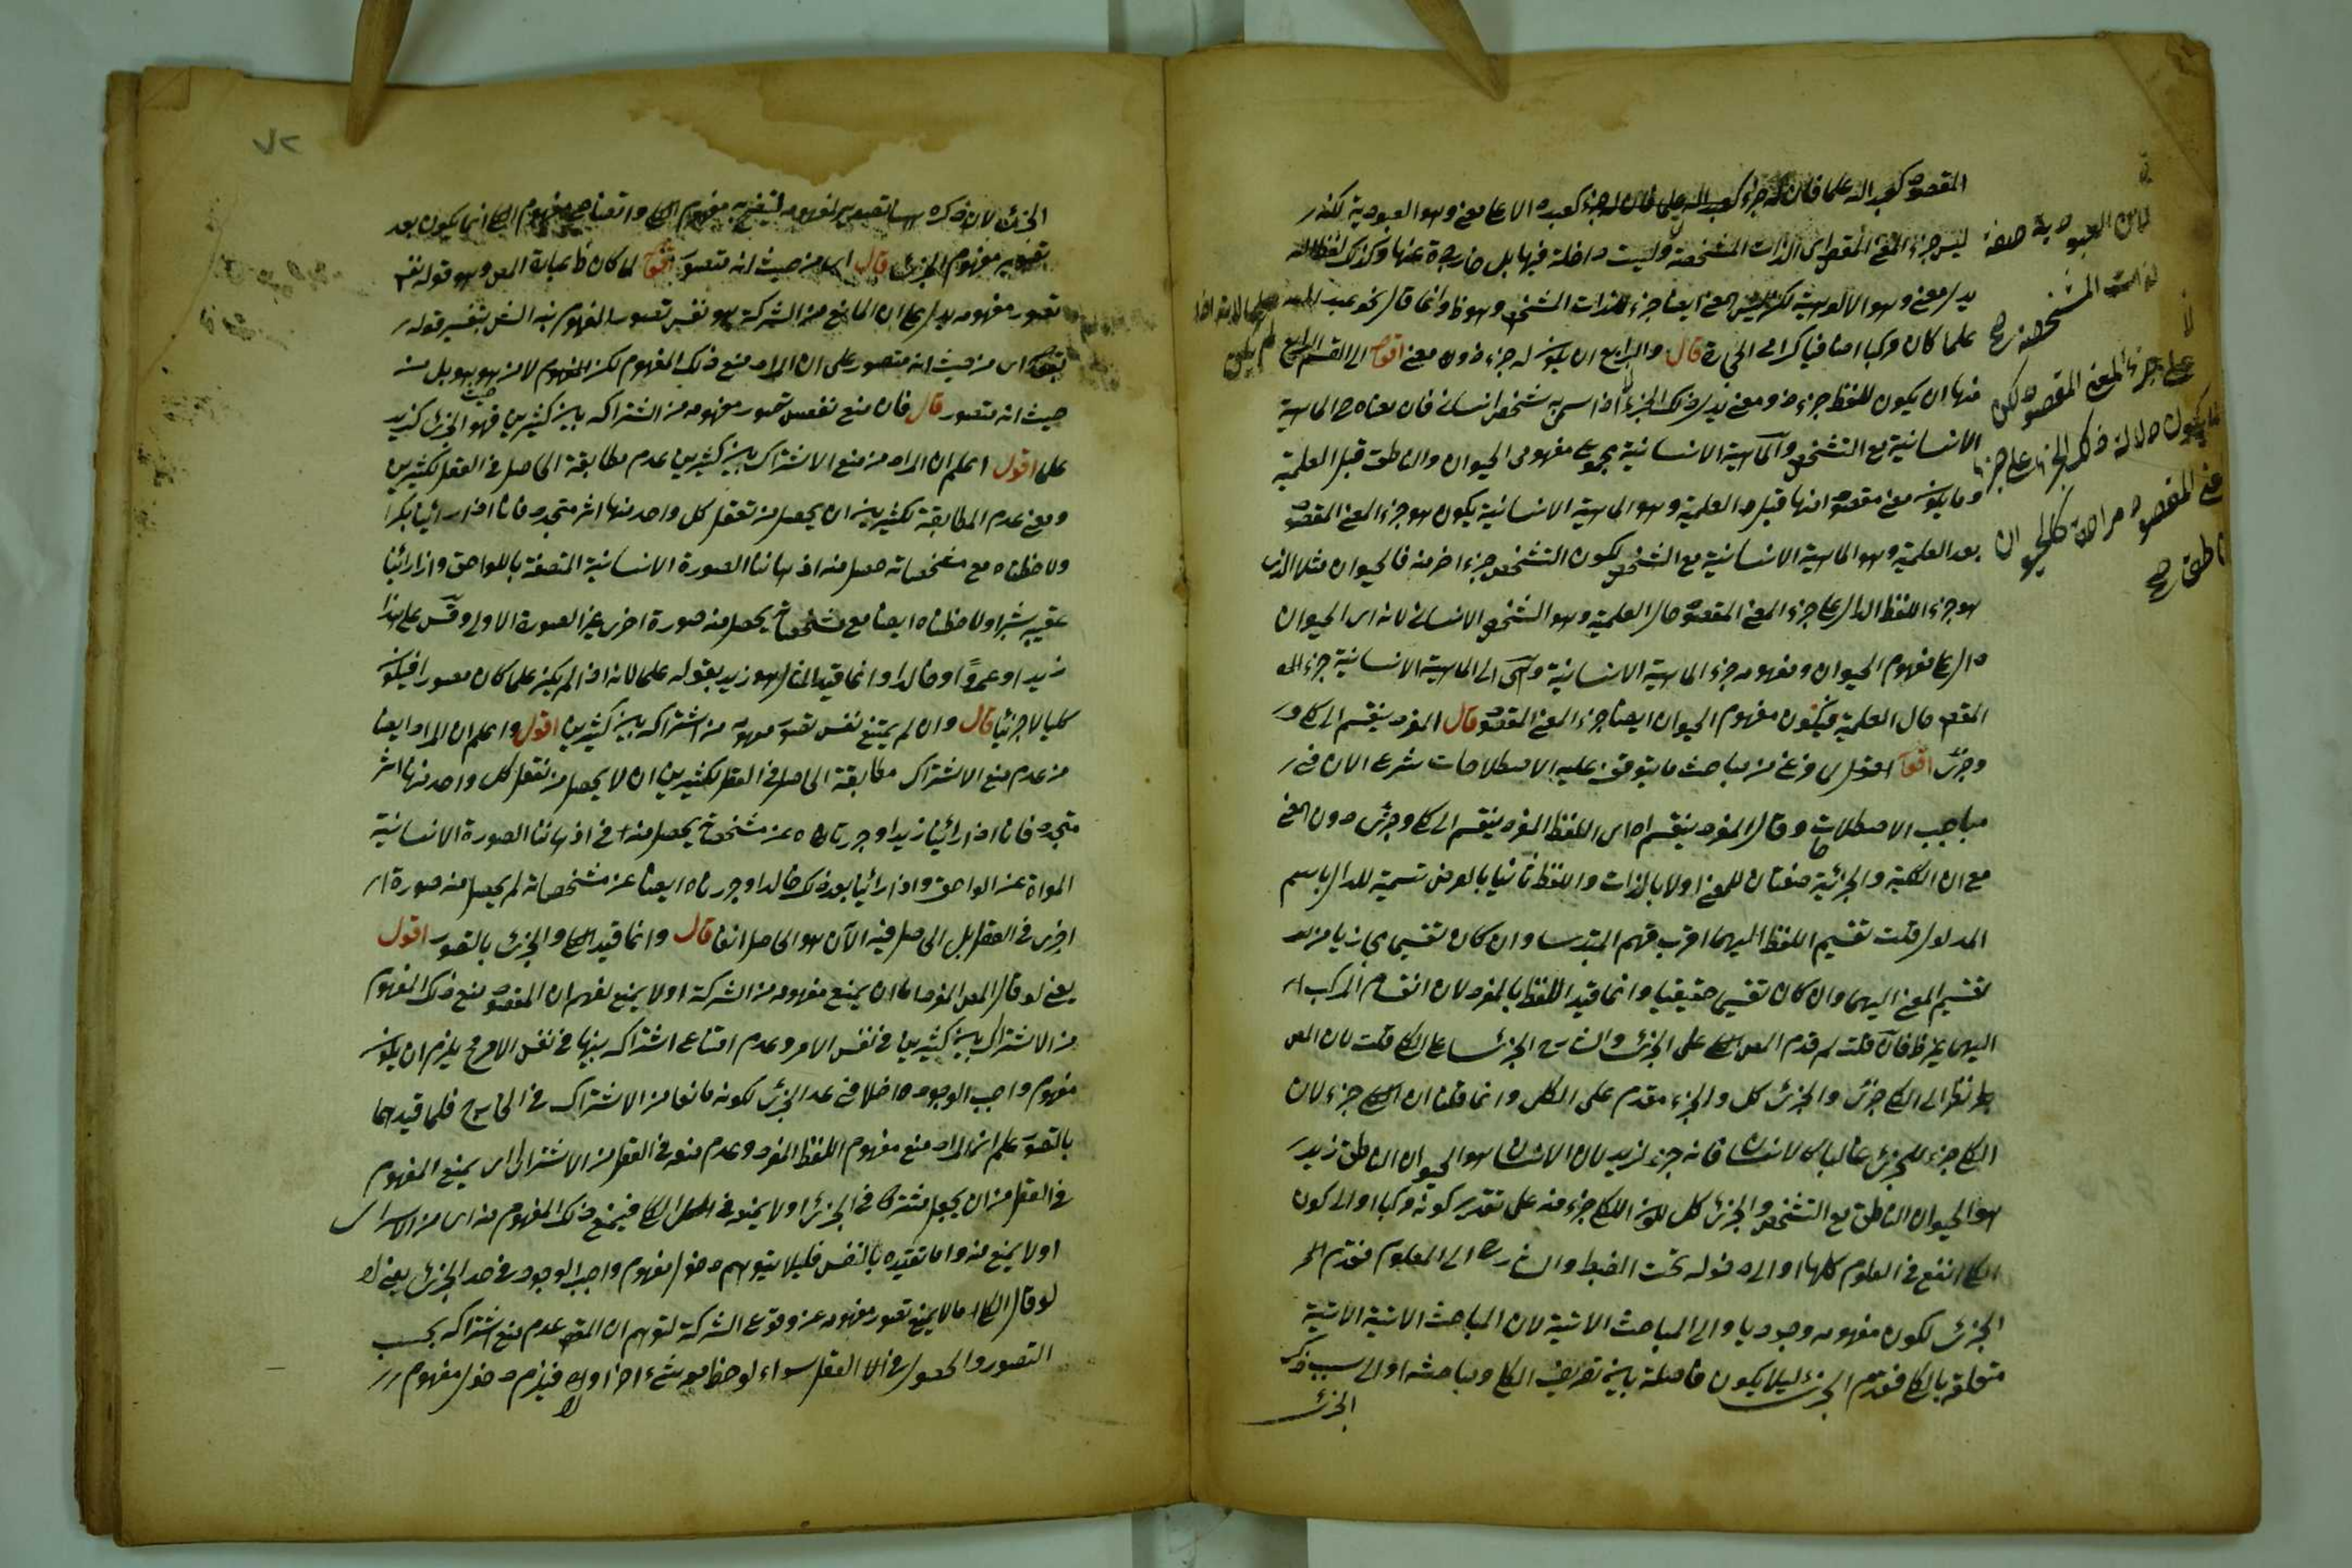 المقصود كعبد الله علما فان له جزء كعبد الله علما فان له جزء كعبد دالا على معنى وهو العبودية لكنه
ليس جزء المعنى المقصود اى الذات المشخصة وليست داخلة فيها بل خارجة عنها وكذلك لفظ الله
يدل معنى وهو الالوهية لكن ليس المعنى ايضا جزء للذات المشخص وهو ظ وانما قال نحو عبد الله
علما كان مركبا اضافيا كرامى الحجارة قال والرابع ان يكون له جزء ذو معنى اقول اى القسم الرابع
منها ان يكون للفظ جزء ذو معنى يدل ذلك الجزء اذا سمى به شخص انسانى فان معناه ح الماهية
الانسانية مع التشخص والماهية الانسانية مجموع مفهومى الحيوان والناطق قبل العلمية
وما يكون معنى مقصودا منها قبل العلمية وهو الماهية الانسانية يكون هو جزء المعنى المقصود
بعد العلمية وهو الماهية الانسانية مع التشخص لكون التشخص جزء اخر منه فالحيوان مثلا الذى
هو جزء اللفظ الدال على جزء المعنى المقصود حال العلمية وهو الشخص الانسانى لانه اى الحيوان
دال على مفهوم الحيوان ومفهومه جزء الماهية الانسانية وهى اى الماهية الانسانية جزء المعنى
المقصود حال العلمية فيكون مفهوم الحيوان ايضا جزء المعنى المقصود قال المفرد ينقسم الى كلى
وجزئى اقول لما فرغ من مباحث ما يتوقف عليه الاصطلاحات شرع الان فى
مباحث الاصطلاحات وقال المفرد ينقسم اه اى اللفظ المفرد ينقسم الى كلى وجزئى دون المعنى
مع ان الكلية والجزئية صفتان للمعنى اولا بالذات واللفظ ثانيا بالعرض تسمية للدال باسم
المدلول قلت تقسيم اللفظ اليهما اقرب فهم المبتدى وان كان تقسيم مجازيا من
تقسيم المعنى اليهما وان كان تقسيم حقيقيا وانما قيد اللفظ بالمفرد لان انقسام المركب
اليهما غير ظ فان قلت لم قدم المص الكلى على الجزئى والشارح الجزئى على الكلى قلت لان المص
نظر الى الكلى جزئى والجزئى كل والجزء مقدم على الكل وانما قلنا ان الكلى جزء لان
الكلى جزء للجزئى غالبا كالانسان فانه جزء لزيد لان الانسان هو الحيوان الناطق وزيد
هو الحيوان الناطق مع التشخص والجزئى كل لكون الكلى جزء منه على تقدير كونه مركبا او الى كون
الكلى انفع فى العلوم كلها او الى دخوله تحت الضبط والشارح الى المعلوم فقدم
الجزئى لكون مفهومه وجوديا والى المباحث الاتية لان المباحث الاتية الاتية
متعلقة بالكلى فقدم الجزئى ليلا يكون فاصلة بين تعريف الكلى ومباحثه او الى سبب ذكر
الجزئى
لان العبودية صفة
للذات المشخصة
على جزء المعنى المقصود لكن
يكون دلالة ذلك الجزء على جزء
المعنى المقصود مرادة كالحيوان
الناطق
٧٢
الجزئى لان ذكره هنا تصوير لمفهومه ليتضح به مفهوم الكلى واتضاح مفهوم الكلى انما يكون بعد
تصوير مفهوم الجزئى قال اى من حيث انه متصور اقول لما كان ظ عبارة المص وهو قوله نفس
تصور مفهومه يدل على ان المانع من الشركة هو نفس تصور المفهوم نبه الش بتفسير قوله
بقوله اى من حيث انه متصور على ان المراد منع ذلك المفهوم لكن المفهوم لا من هو هو بل من
حيث انه متصور قال فان منع نفس تصور مفهومه من اشتراكه بين كثيرين فهو الجزئى كزيد
علما اقول اعلم ان المراد من منع الاشتراك بين كثيرين عدم مطابقة الحاصل فى العقل لكثيرين
ومعنى عدم المطابقة لكثيرين ان يحصل من تعقل كل واحد منها اثر متجدد فانا اذا رأينا بكرا
ولاحظناه مع مشخصاته حصل منه اذهاننا الصورة الانسانية المتصفة باللواحق واذا رأينا
عقيبه بشرا ولاحظناه ايضا مع مشخصاته يحصل منه صورة اخرى غير الصورة الاولى وقس على هذا
زيدا وعمروا وخالدا وانما قيد المثال وهو زيد بقوله علما لانه اذا لم يكن علما كان مصدرا فيكون
كليا لا جزئيا قال وان لم يمنع نفس تصور مفهومه من اشتراكه بين كثيرين اقول واعلم ان المراد ايضا
من عدم منع الاشتراك مطابقة الحاصل فى العقل لكثيرين ان لا يحصل من تعقل كل واحد منها اثر
متجدد فانا اذا رأينا زيدا وجردناه عن مشخصاته يحصل منه فى اذهاننا الصورة الانسانية
المعراة عن اللواحق واذا رأينا بعد ذلك خالدا وجردناه ايضا عن مشخصاته لم يحصل منه صورة
اخرى فى العقل بل الحاصل فيه الآن هو الحاصل انفا قال وانما قيد الكلى والجزئى بالتصور اقول
يعنى لو قال المص المفرد اما ان يمنع مفهومه من الشركة او لا يمنع لفهم ان المقصود منع ذلك المفهوم
من الاشتراك بين كثيرين فى نفس الامر وعدم امتناع اشتراكه بينها فى نفس الامر ح يلزم ان يكون
مفهوم واجب الوجود داخلا فى حد الجزئى لكونه مانعا من الاشتراك فى الخارج فلما قيدهما
بالتصور علم ان المراد منع مفهوم اللفظ المفرد وعدم منعه فى العقل من الاشتراك اى يمنع المفهوم
فى العقل من ان يجعل مشتركا فى الجزئى او لا يمنعه فى الكلى فيمنع ذلك المفهوم منه اى من الاشتراك
او لا يمنع منه واما تقييده بالنفس فليلا يتوهم دخول مفهوم واجب الوجود فى حد الجزئى يعنى
لو قال الكلى ما لا يمنع تصور مفهومه عن وقوع الشركة لتوهم ان المقصود عدم منع اشتراكه بحسب
التصور والحصول فى العقل سواء لوحظ معه شىء اخر او لا فيلزم دخول مفهوم